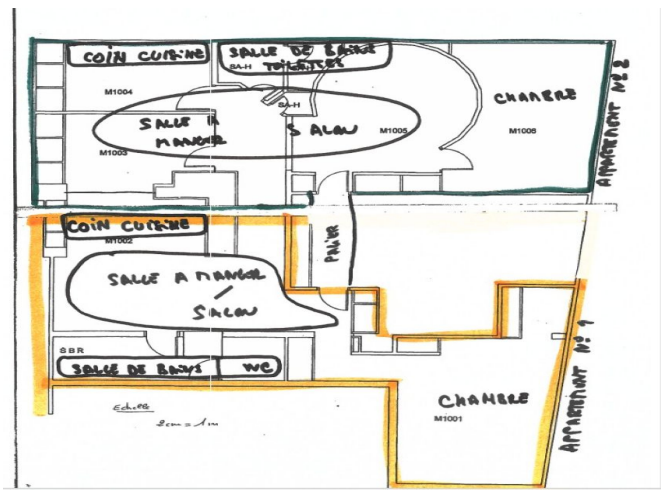 COIN CUISINE
SALLE DE BAINS
TOILETTES
SA-H
M1004
SA-H
CHAMBRE
SALLE A
MANGER
SALON
M1005
M1006
M1003
APPARTEMENT N° 2
COIN CUISINE
M1002
PALIER
SALLE A MANGER
/
SALON
SBR
SALLE DE BAINS
WC
CHAMBRE
M1001
APPARTEMENT N° 1
Echelle
2cm = 1m